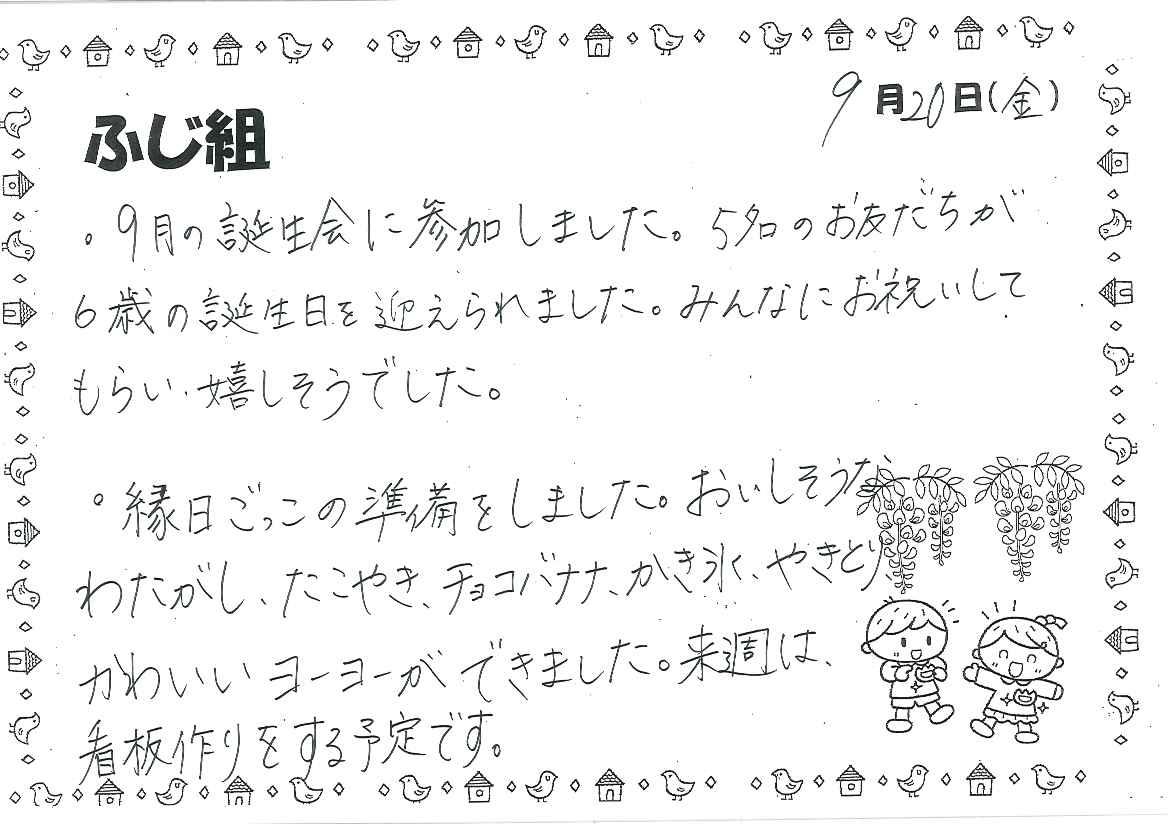 9月20日(金)
ふじ組
。9月の誕生会に参加しました。5名のお友だちが
6歳の誕生日を迎えられました。みんなにお祝いして
もらい、嬉しそうでした。
。縁日ごっこの準備をしました。おいしそうな
わたがし、たこやき、チョコバナナ、かき氷、やきとり、
かわいいヨーヨーができました。来週は、
看板作りをする予定です。